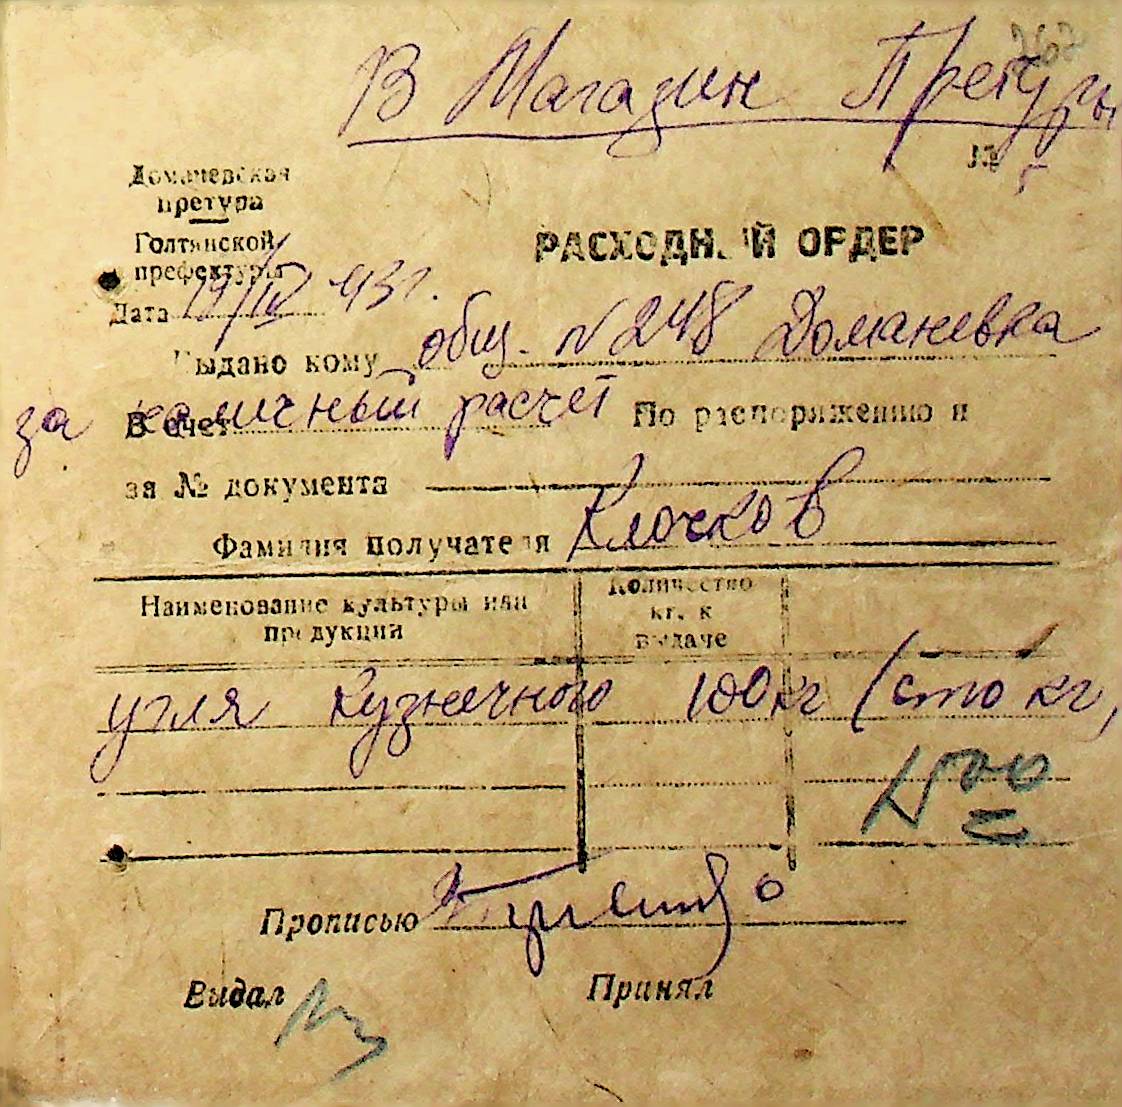 В Магазин Претуры
№
Домачевская
претура
Голтянской
префектуры
РАСХОДНЫЙ ОРДЕР
Дата 19/IV 43 г.
Выдано кому общ. N 248 Доманевка
В счет за наличный расчет По распоряжению и
за № документа
Фамилия получателя Клочков
Наименование культуры или
продукции
Количество
кг. к
выдаче
угля кузнечного 100 кг (сто кг,
Прописью
Выдал Принял